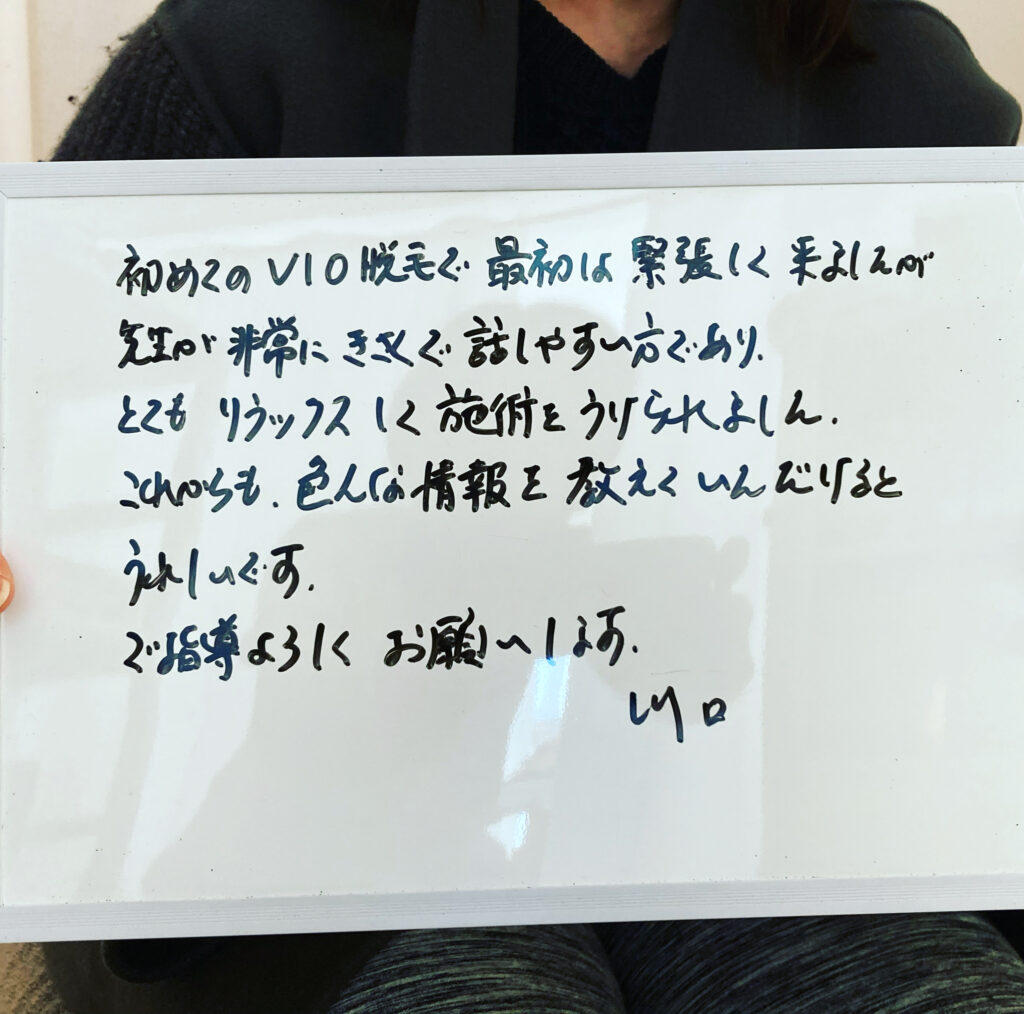 初めてのVIO脱毛で 最初は 緊張して 来ましたが
先生が 非常に きさくで 話しやすい方であり、
とても リラックスして 施術を うけられました。
これからも、色んな情報を 教えて いただけると
うれしいです。
ご指導よろしく お願いします。
川口